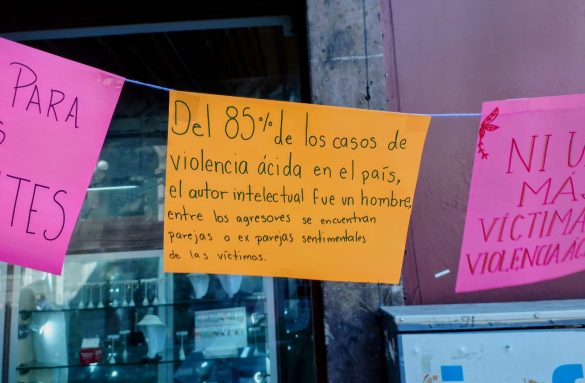 PARA
TES
Del 85% de los casos de
violencia ácida en el país,
el autor intelectual fue un hombre,
entre los agresores se encuentran
parejas o ex parejas sentimentales
de las víctimas.
NI U
MÁS
VÍCTIMA
VIOLENCIA ÁC